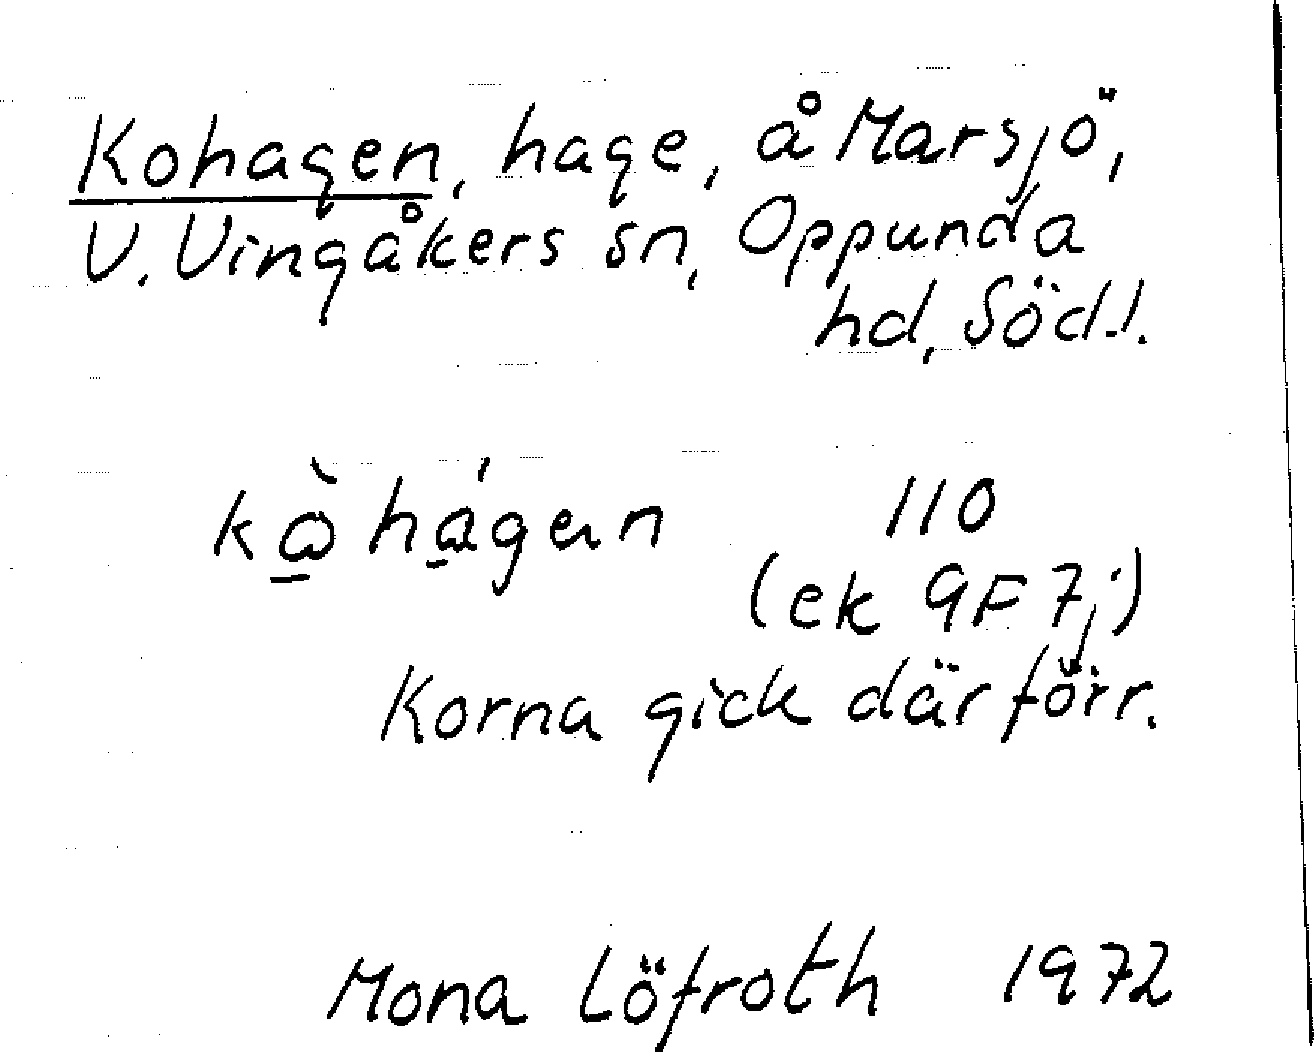 Kohagen, hage, å Marsjö,
V. Vingåkers sn, Oppunda
hd, Södl.
110
(ek 9F7j)
Korna gick där förr.
Mona Löfroth 1972